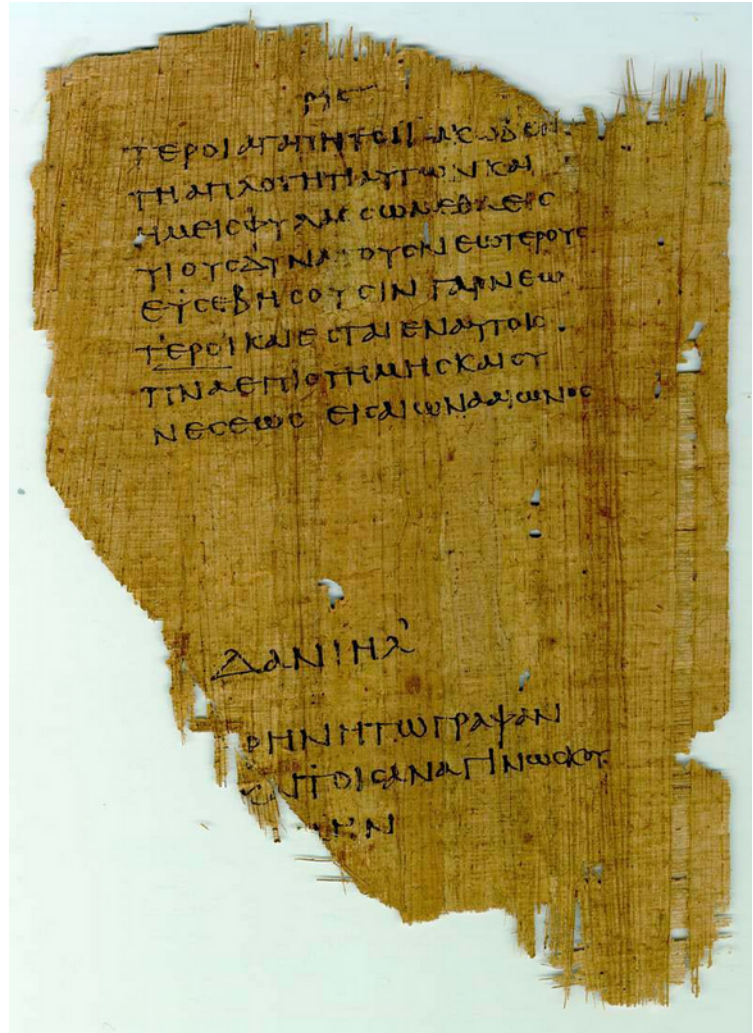 ΤΕΡΟΙΑΓΑΠΗΤΟΙΙΑΚΩΒΕΝ
ΤΗΑΠΛΟΤΗΤΙΑΥΤΩΝΚΑΙ
ΗΜΕΙϹΦΥΛΑϹϹΩΜΕΘΑΕΙϹ
ΥΙΟΥϹΔΥΝΑΤΟΥϹΝΕΩΤΕΡΟΥϹ
ΕΥϹΕΒΗϹΟΥϹΙΝΓΑΡΝΕΩ
ΤΕΡΟΙΚΑΙΕϹΤΑΙΕΝΑΥΤΟΙϹ
ΠΝΑΕΠΙϹΤΗΜΗϹΚΑΙϹΥ
ΝΕϹΕΩϹ ΕΙϹΑΙΩΝΑΑΙΩΝΟϹ
ΔΑΝΙΗΛ
ΡΗΝΗΤΩΓΡΑΨΑΝ
ΚΑΙΤΟΙϹΑΝΑΓΙΝΩϹΚΟΥ
ΜΗΝ